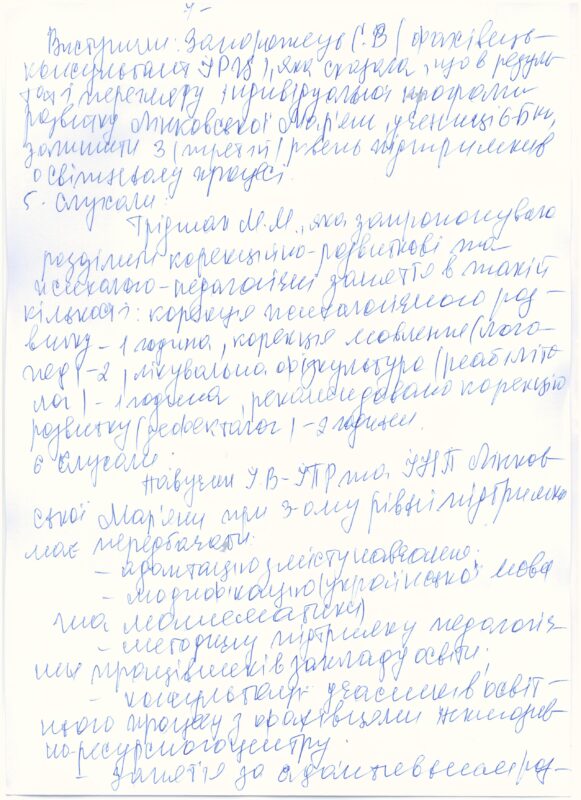 7-
Виступили: Запорожець Г.В (фахівець-
консультант ІРЦ), яка сказала, що в резуль-
таті перегляду індивідуальної програми
розвитку Мінковської Мар'яни, учениці 6-Б кл,
залишити 3 (третій) рівень підтримки в
освітньому процесі.
5. Слухали:
Трідман М.М., яка запропонувала
розділити корекційно-розвиткові та
психолого-педагогічні заняття в такій
кількості: корекція психологічного роз-
витку - 1 година, корекція мовлення (лого-
пед) - 2, лікувальна фізкультура (реабіліто-
лог) - 1 година, рекомендовано корекцію
розвитку (дефектолог) - 2 години.
6 Слухали:
І.В - ІПР та ІНП Мінков-
ської Мар'яни при 3-ому рівні підтримки
має передбачати:
- адаптацію змісту навчання;
- модифікацію (української мови
та математики)
- методичну підтримку педагогіч-
них працівників закладу освіти;
- консультації учасників освіт-
нього процесу з фахівцями інклюзив-
но-ресурсного центру.
- заняття за адаптивними роз-